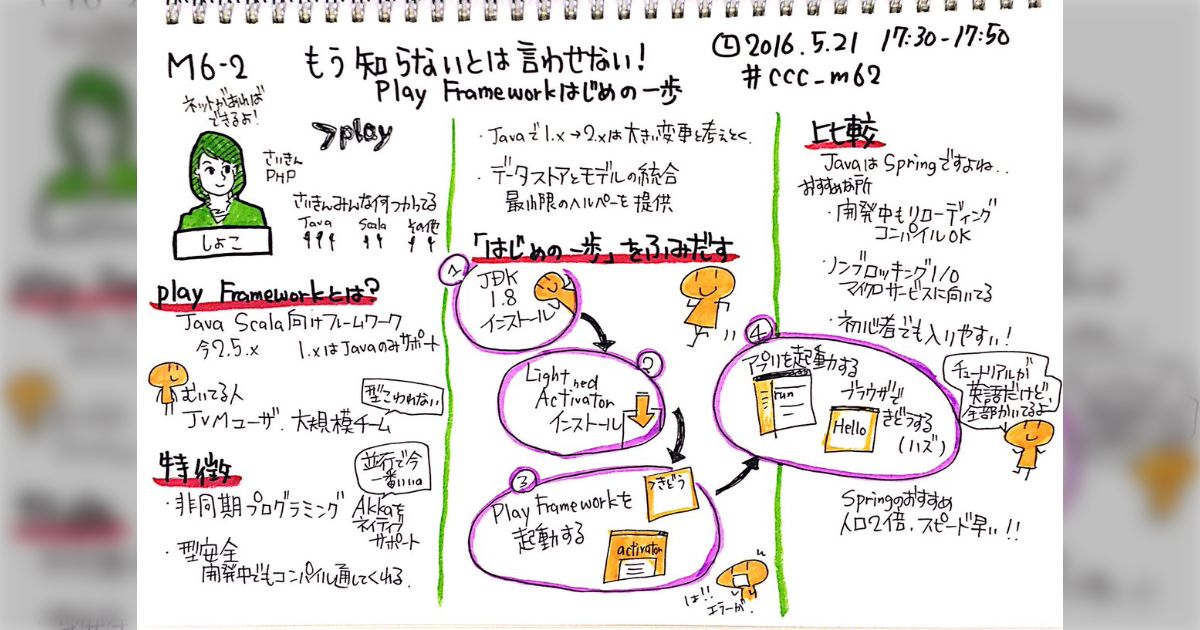 M6-2
もう知らないとは言わせない!
Play Frameworkはじめの一歩
2016.5.21 17:30-17:50
#ccc_m62
ネットがあれば
できるよ!
さいきん
PHP
しょこ
>play
さいきんみんな何つかってる
Java Scala その他
play Frameworkとは?
Java Scala向けフレームワーク
今2.5.x 1.xはJavaのみサポート
むいてる人
JVMユーザ、大規模チーム
型こわれない
特徴
・非同期プログラミング
並行で今
一番いいα
Akkaを
ネイティブ
サポート
・型安全
開発中でもコンパイル通してくれる.
・Javaで1.x→2.xは大きい変更と考えとく.
・データストアとモデルの統合
最小限のヘルパーを提供
「はじめの一歩」をふみだす
1
JDK
1.8
インストール
2
Light bed
Activator
インストール
3
Play Frameworkを
起動する
>きどう
activator
は!!
エラーが.
4
アプリを起動する
run
ブラウザで
きどうする
(ハズ)
Hello
比較
JavaはSpringですよね..
おすすめな所
・開発中もリローディング
コンパイルOK
・ノンブロッキングI/O
マイクロサービスに向いてる
・初心者でも入りやすい!
チュートリアルが
英語だけど、
全部かいてるよ
Springのおすすめ
人口2倍.スピード早い!!